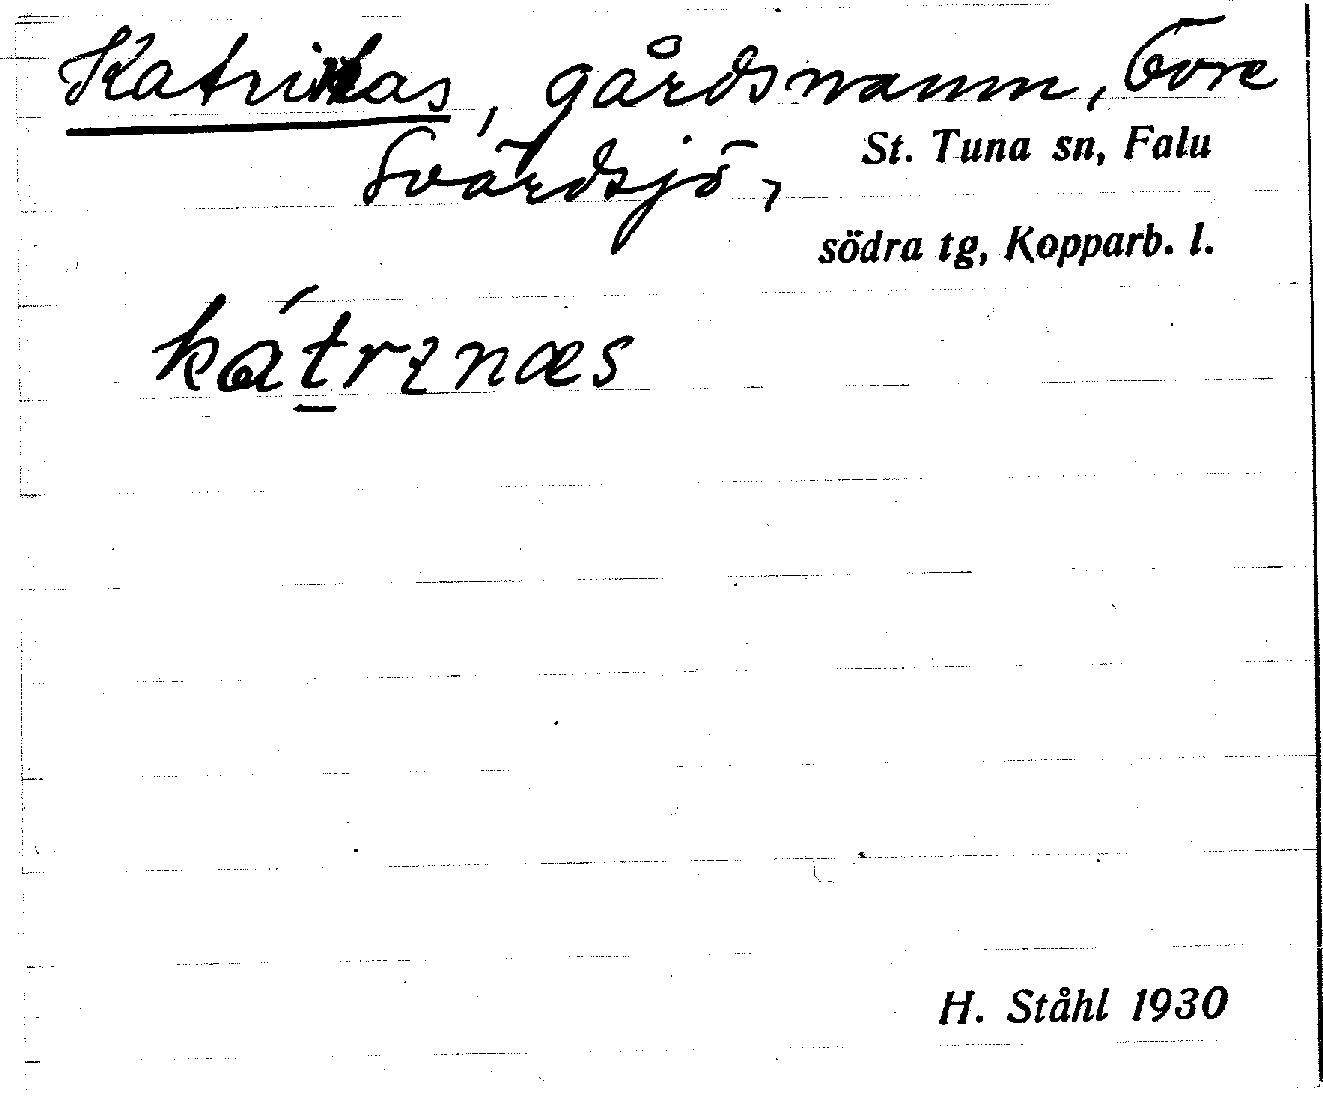 Katrinas, gårdsnamn, Övre
Svärdsjö,
St. Tuna sn, Falu
södra tg, Kopparb. l.
kátrɩnæs
H. Ståhl 1930